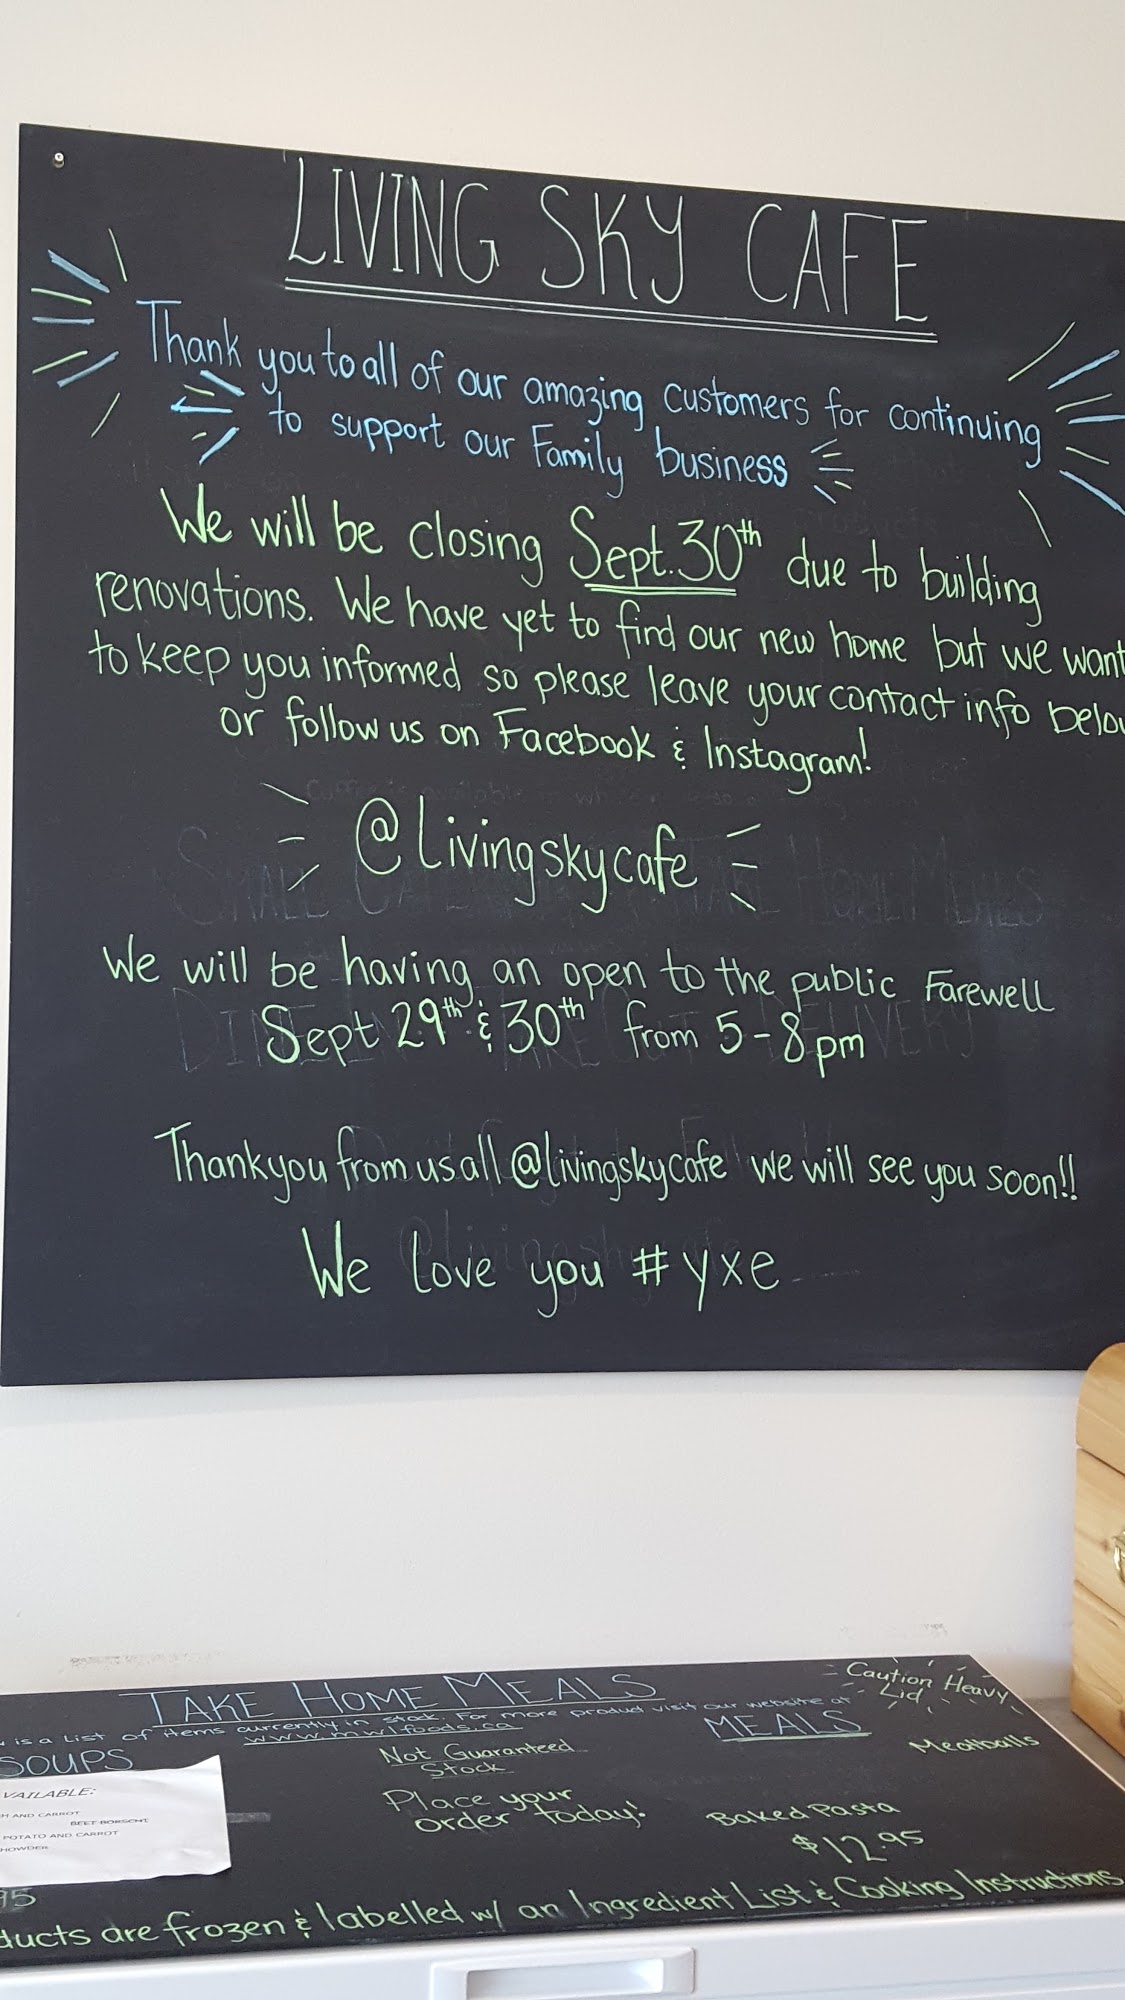 LIVING SKY CAFE
Thank you to all of our amazing customers for continuing
to support our Family business
We will be closing Sept. 30th due to building
renovations. We have yet to find our new home but we want
to keep you informed so please leave your contact info
or follow us on Facebook & Instagram!
@livingskycafe
We will be having an open to the public Farewell
Sept 29th & 30th from 5-8pm
Thankyou from us all @livingskycafe we will see you soon!!
We love you #yxe
Caution Heavy
Lid
TAKE HOME MEALS
is a List of items currently in stock. For more product visit our website at
www.mwlfoods.ca
SOUPS
Not Guaranteed
Stock
Place your
order today!
MEALS
Meatballs
Baked Pasta
$12.95
AND CARROT
BEET BORSCHT
POTATO AND CARROT
are frozen & labelled w/ an Ingredient List & Cooking Instructions